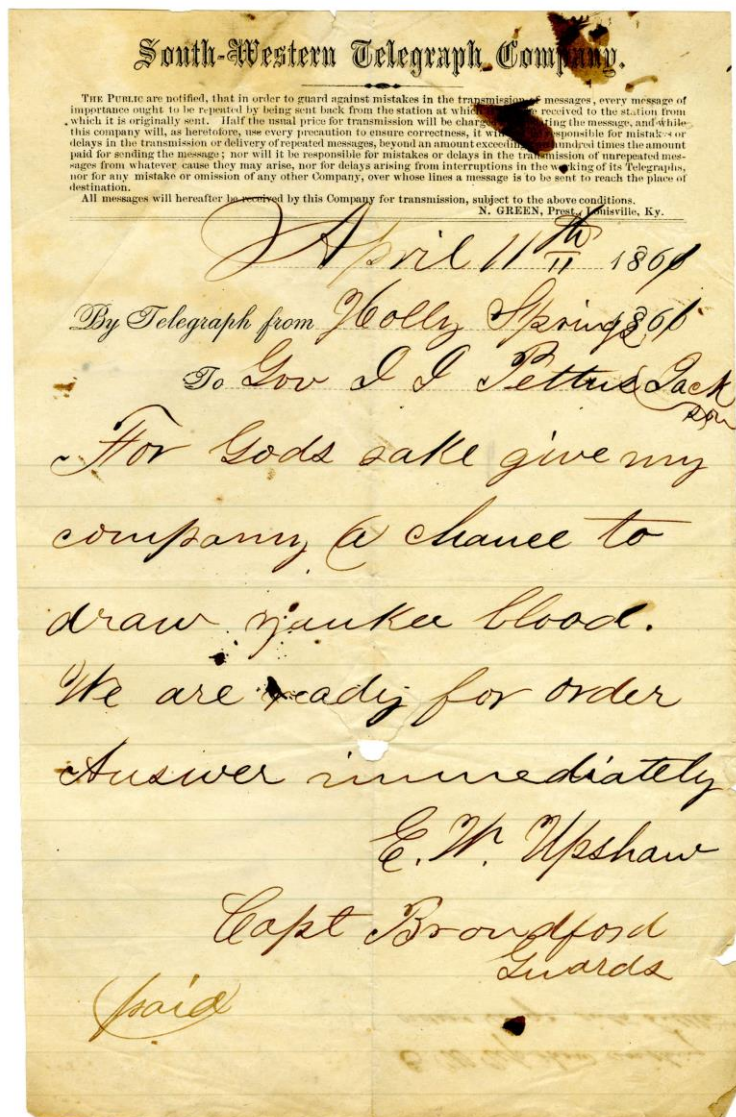 South-Western Telegraph Company.
THE PUBLIC are notified, that in order to guard against mistakes in the transmission of messages, every message of
importance ought to be repeated by being sent back from the station at which received to the station from
which it is originally sent. Half the usual price for transmission will be charged ting the message, and while
this company will, as heretofore, use every precaution to ensure correctness, it will responsible for mistakes or
delays in the transmission or delivery of repeated messages, beyond an amount exceeding hundred times the amount
paid for sending the message; nor will it be responsible for mistakes or delays in the transmission of unrepeated mes-
sages from whatever cause they may arise, nor for delays arising from interruptions in the working of its Telegraphs,
nor for any mistake or omission of any other Company, over whose lines a message is to be sent to reach the place of
destination.
All messages will hereafter be received by this Company for transmission, subject to the above conditions.
N. GREEN, Prest., Louisville, Ky.
April 11th 1861
By Telegraph from Holly Springs 1861
To Gov J J Pettus Jackson
For Gods sake give my
company a chance to
draw yankee blood.
We are ready for order
Answer immediately
E. W. Upshaw
Capt
Guards
paid